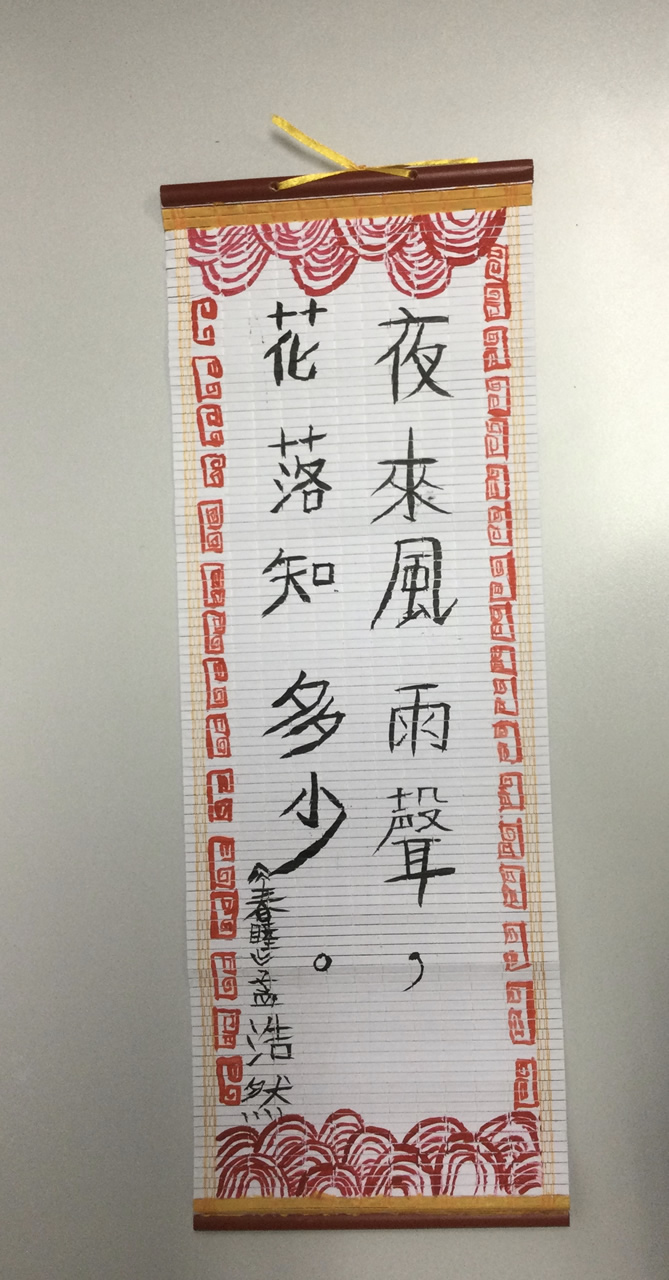 夜來風雨聲，
花落知多少。
《春曉》孟浩然